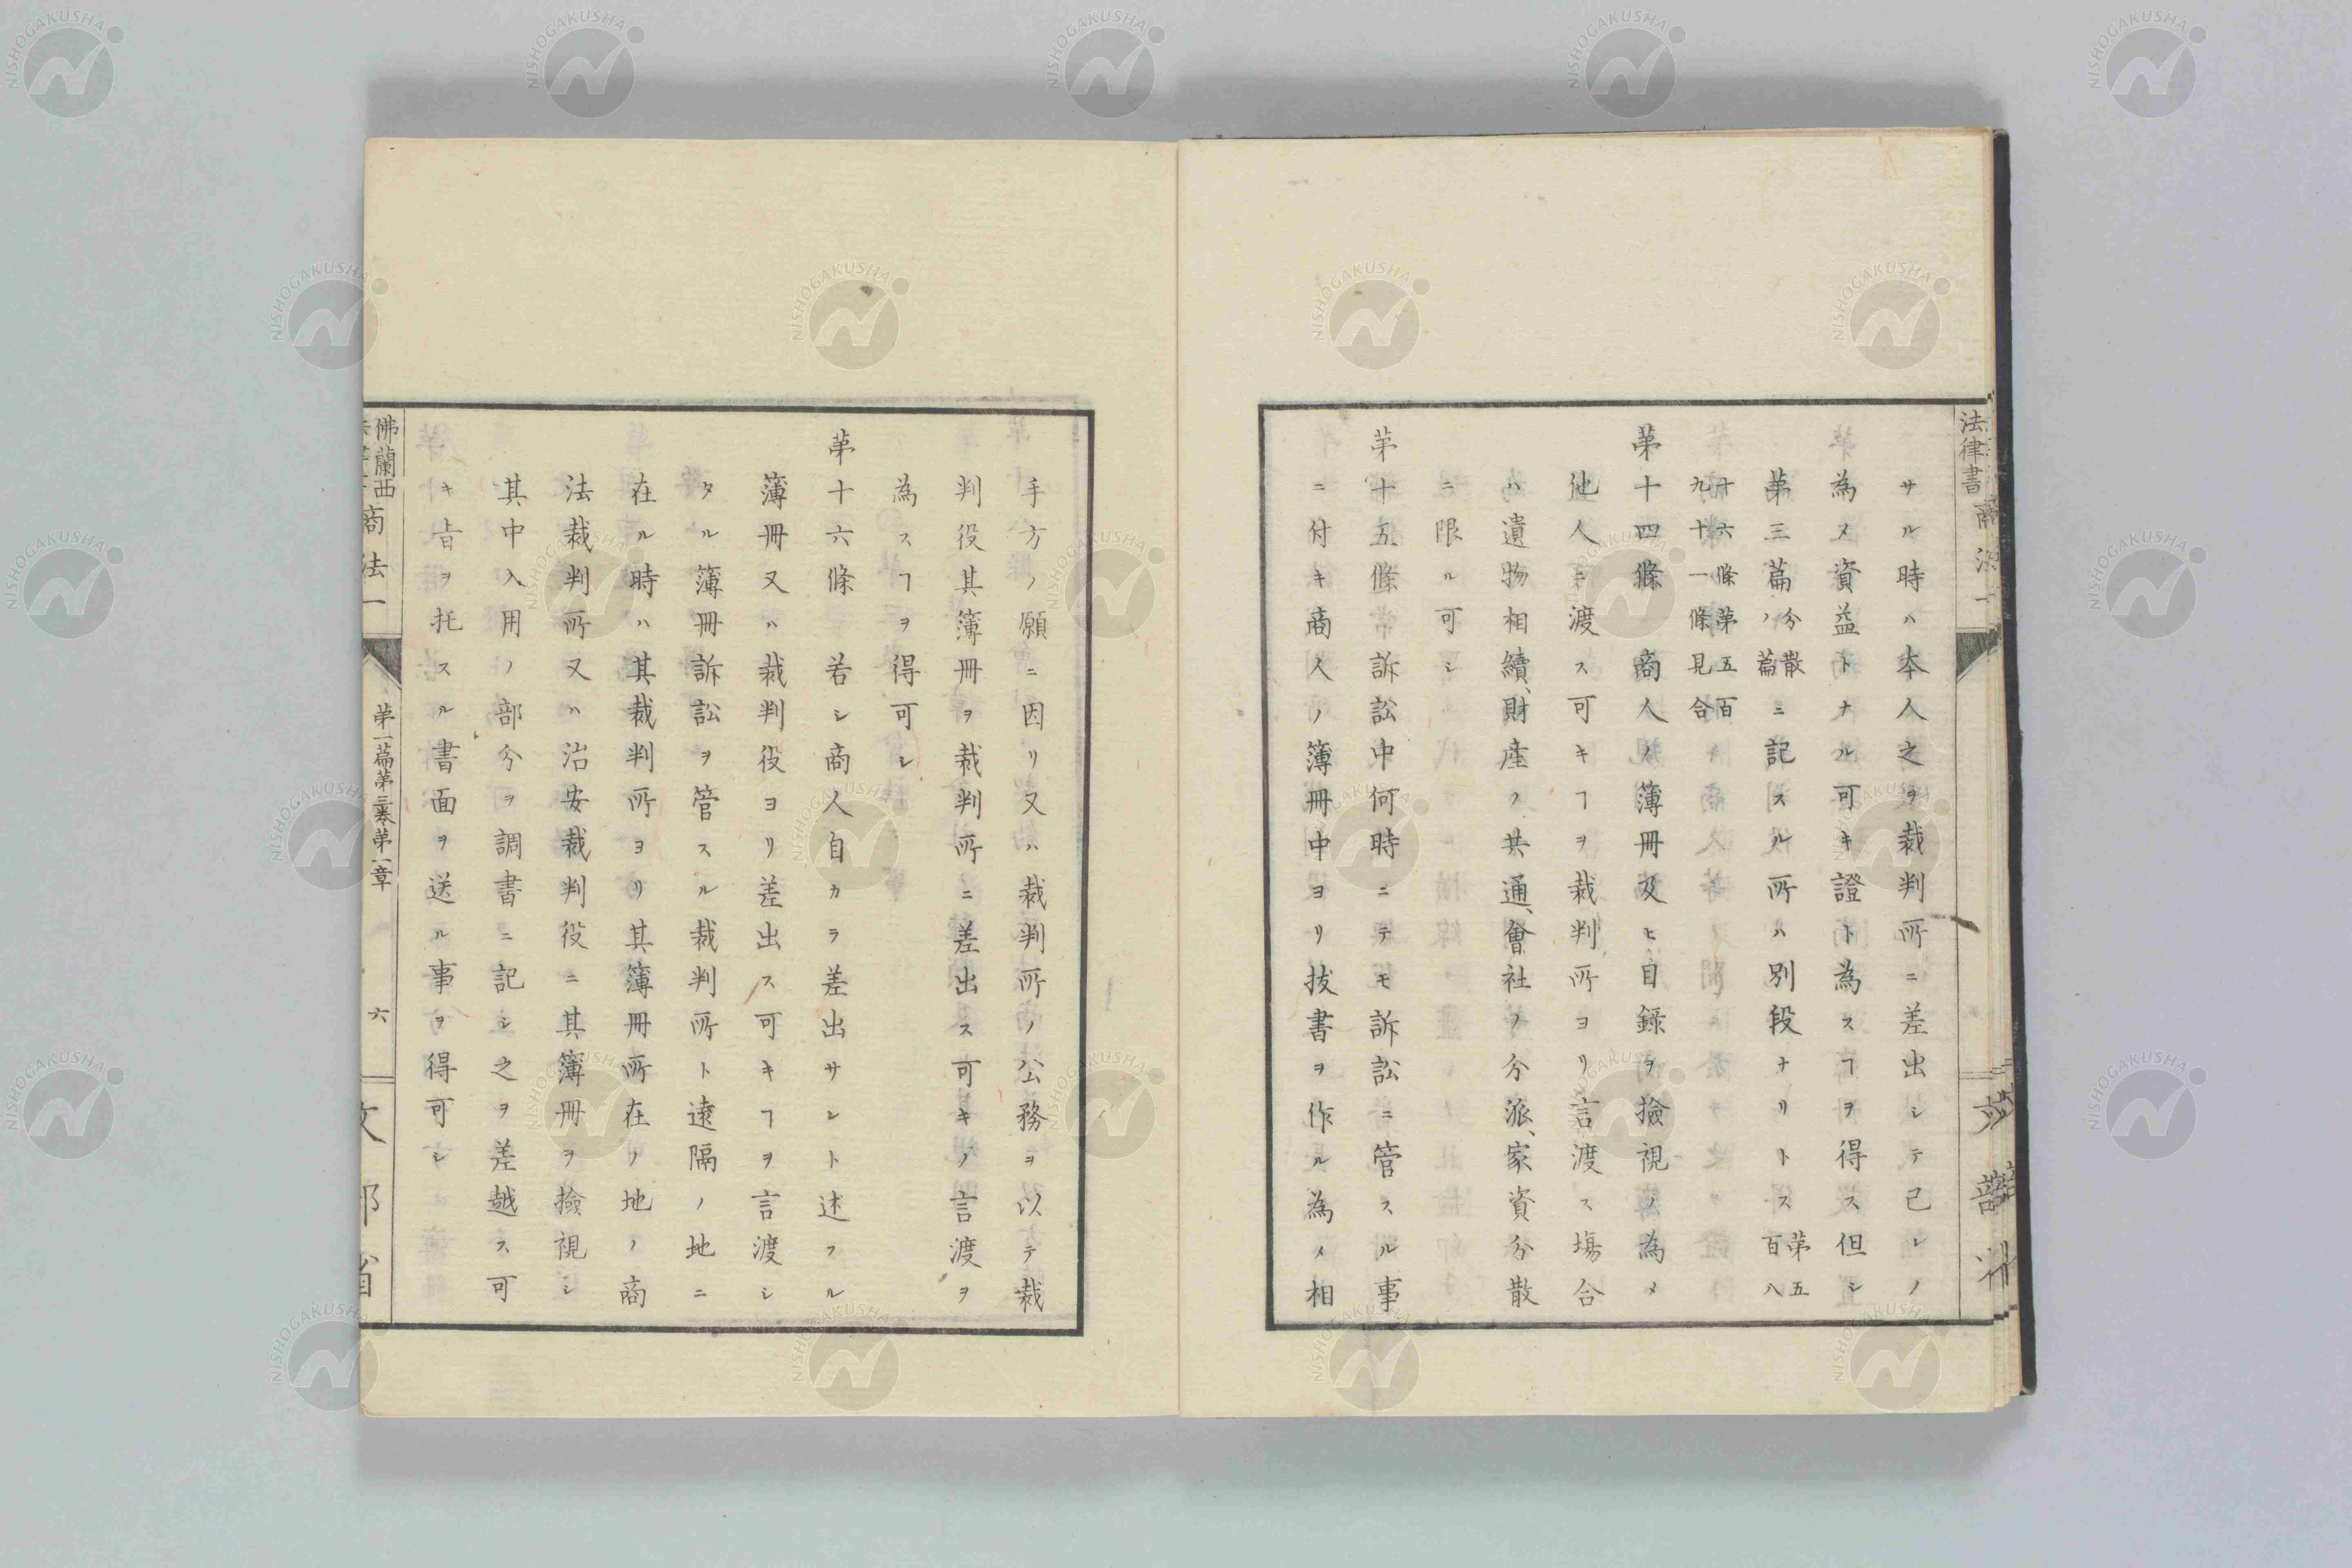 サル時ハ本人之ヲ裁判所ニ差出シテ己レノ
為メ資益トナル可キ證ト為スヿヲ得ス但シ
第三篇ノ分散篇ニ記スル所ハ別段ナリトス第五百八
十六條第五百九十一條見合
第十四條 商人ノ簿冊及ヒ目録ヲ撿視ノ為メ
他人ニ渡ス可キヿヲ裁判所ヨリ言渡ス塲合
ハ遺物相續、財產ノ共通、會社ノ分派、家資分散
ニ限ル可シ
第十五條 訴訟中何時ニテモ訴訟ニ管スル事
ニ付キ商人ノ簿冊中ヨリ抜書ヲ作ル為メ相
手方ノ願ニ因リ又ハ裁判所ノ公務ヲ以テ裁
判役其簿冊ヲ裁判所ニ差出ス可キノ言渡ヲ
為スヿヲ得可シ
第十六條 若シ商人自カラ差出サント述フル
簿冊又ハ裁判役ヨリ差出ス可キヿヲ言渡シ
タル簿冊訴訟ヲ管スル裁判所ト遠隔ノ地ニ
在ル時ハ其裁判所ヨリ其簿冊所在ノ地ノ商
法裁判所又ハ治安裁判役ニ其簿冊ヲ撿視シ
其中入用ノ部分ヲ調書ニ記シ之ヲ差越ス可
キ旨ヲ托スル書面ヲ送ル事ヲ得可シ
法律書 商法一
佛蘭西 商法一 第一篇第二巻第一章 六 文部省
NISHOGAKUSHA